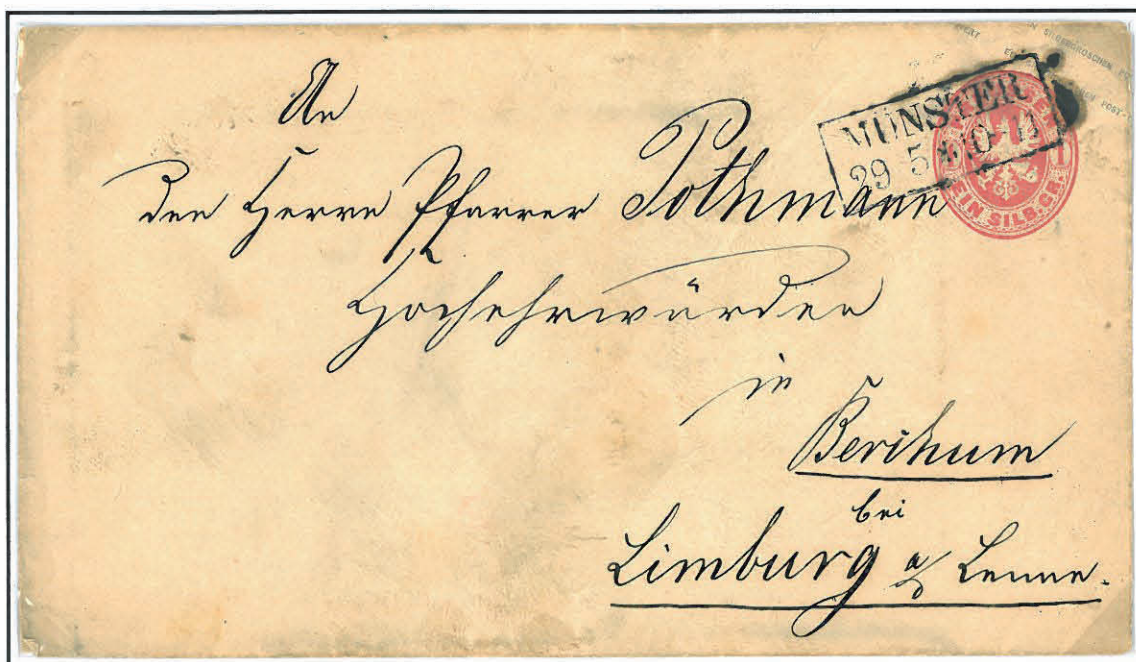 MÜNSTER
29 5 * 10-11
EIN SILB. GR.
An
den Herrn Pfarrer Pothmann
Hochehrwürden
in
Berchum
bei
Limburg a/d Lenne.